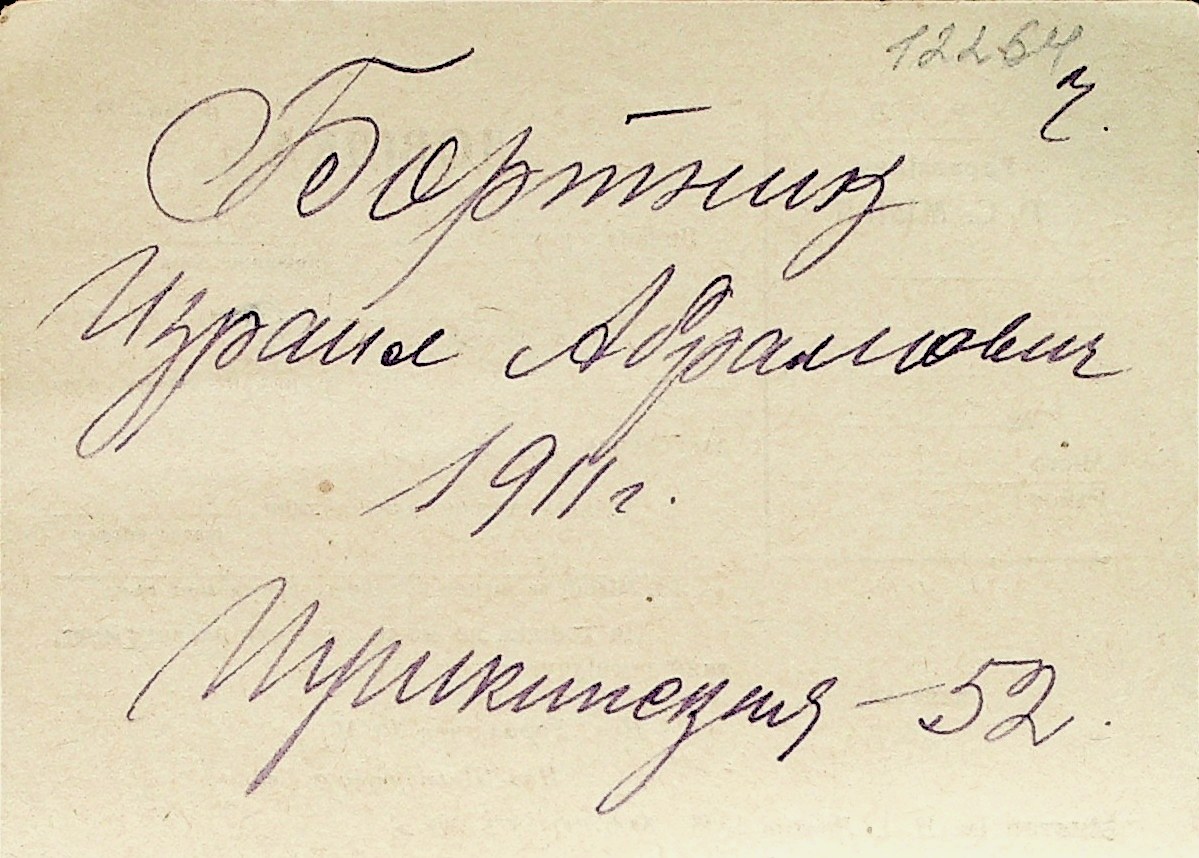 12264
ч.
Бортник
Израил Абрамович
1911 г.
Пушкинская - 52.